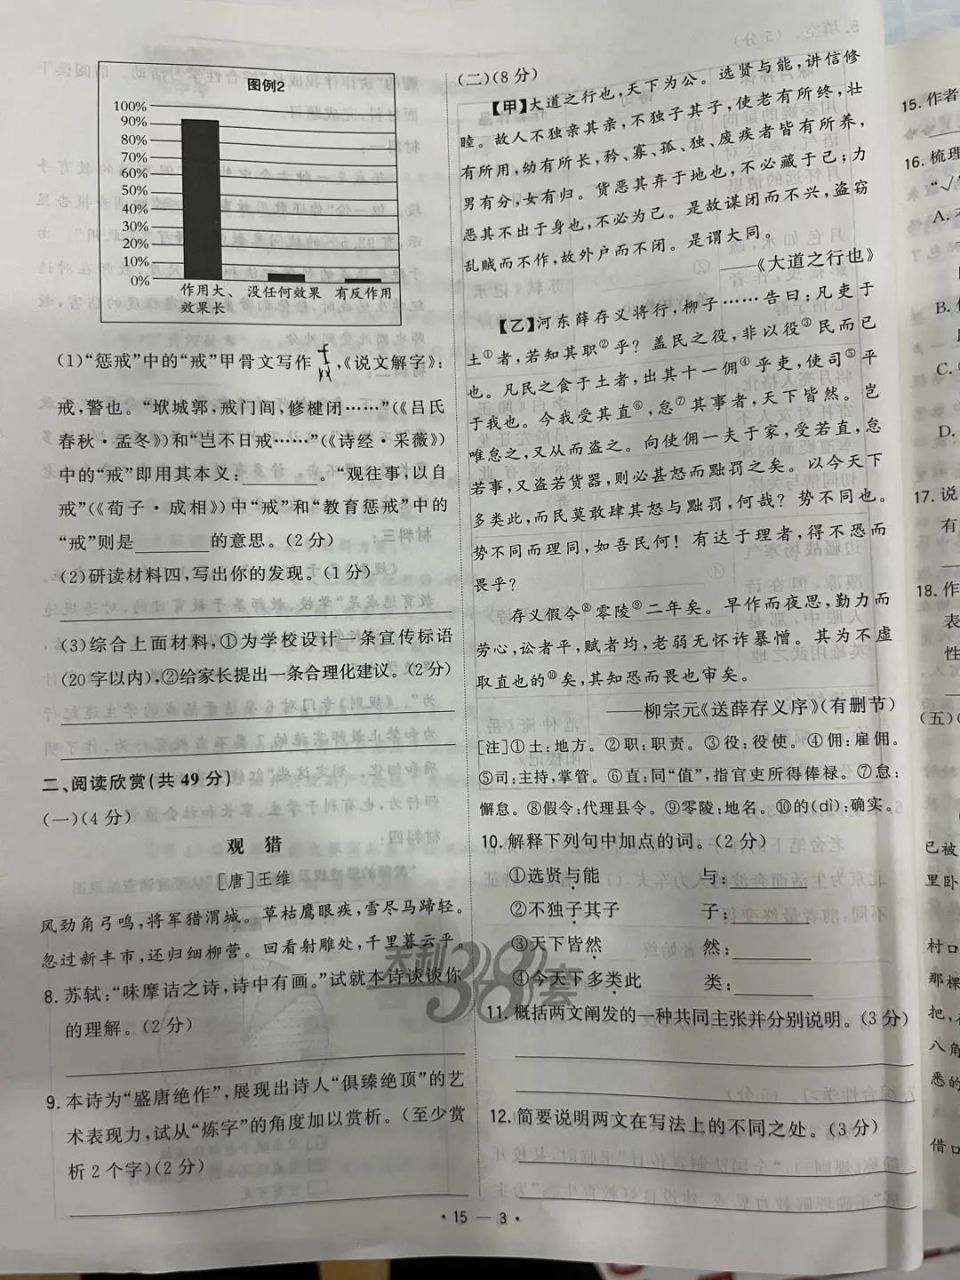 图例2
100%
90%
80%
70%
60%
50%
40%
30%
20%
10%
0%
作用大、 没任何效果 有反作用
效果长
(1)“惩戒”中的“戒”甲骨文写作 ,《说文解字》:
戒,警也。“坿城郭,戒门闾,修楗闭……”(《吕氏
春秋·孟冬》)和“岂不日戒……”(《诗经·采薇》)
中的“戒”即用其本义:________。“观往事,以自
戒”(《荀子·成相》)中“戒”和“教育惩戒”中的
“戒”则是________的意思。(2分)
(2)研读材料四,写出你的发现。(1分)
(3)综合上面材料,①为学校设计一条宣传标语
(20字以内),②给家长提出一条合理化建议。(2分)
二、阅读欣赏(共49分)
(一)(4分)
观 猎
[唐]王维
风劲角弓鸣,将军猎渭城。草枯鹰眼疾,雪尽马蹄轻。
忽过新丰市,还归细柳营。回看射雕处,千里暮云平。
8. 苏轼:“味摩诘之诗,诗中有画。”试就本诗谈谈你
的理解。(2分)
9. 本诗为“盛唐绝作”,展现出诗人“俱臻绝顶”的艺
术表现力,试从“炼字”的角度加以赏析。(至少赏
析2个字)(2分)
(二)(8分)
【甲】大道之行也,天下为公。选贤与能,讲信修
睦。故人不独亲其亲,不独子其子,使老有所终,壮
有所用,幼有所长,矜、寡、孤、独、废疾者皆有所养,
男有分,女有归。货恶其弃于地也,不必藏于己;力
恶其不出于身也,不必为己。是故谋闭而不兴,盗窃
乱贼而不作,故外户而不闭。是谓大同。
——《大道之行也》
【乙】河东薛存义将行,柳子……告曰:凡吏于
土①者,若知其职②乎?盖民之役,非以役③民而已
也。凡民之食于土者,出其十一佣④乎吏,使司⑤平
于我也。今我受其直⑥,怠⑦其事者,天下皆然。岂
唯怠之,又从而盗之。向使佣一夫于家,受若直,怠
若事,又盗若货器,则必甚怒而黜罚之矣。以今天下
多类此,而民莫敢肆其怒与黜罚,何哉?势不同也。
势不同而理同,如吾民何!有达于理者,得不恐而
畏乎?
存义假令⑧零陵⑨二年矣。早作而夜思,勤力而
劳心,讼者平,赋者均,老弱无怀诈暴憎。其为不虚
取直也的⑩矣,其知恐而畏也审矣。
——柳宗元《送薛存义序》(有删节)
[注]①土:地方。②职:职责。③役:役使。④佣:雇佣。
⑤司:主持,掌管。⑥直:同“值”,指官吏所得俸禄。⑦怠:
懈怠。⑧假令:代理县令。⑨零陵:地名。⑩的(dì):确实。
10. 解释下列句中加点的词。(2分)
①选贤与能 与:________
②不独子其子 子:________
③天下皆然 然:________
④今天下多类此 类:________
11. 概括两文阐发的一种共同主张并分别说明。(3分)
12. 简要说明两文在写法上的不同之处。(3分)
天利38套
·15—3·
15. 作者
16. 梳理
“√”
A.
B.
C.
D.
17. 说
有
18. 作
表
性
(五)
已被
里卧
村口
那棵
把,
八角
悉的
借口